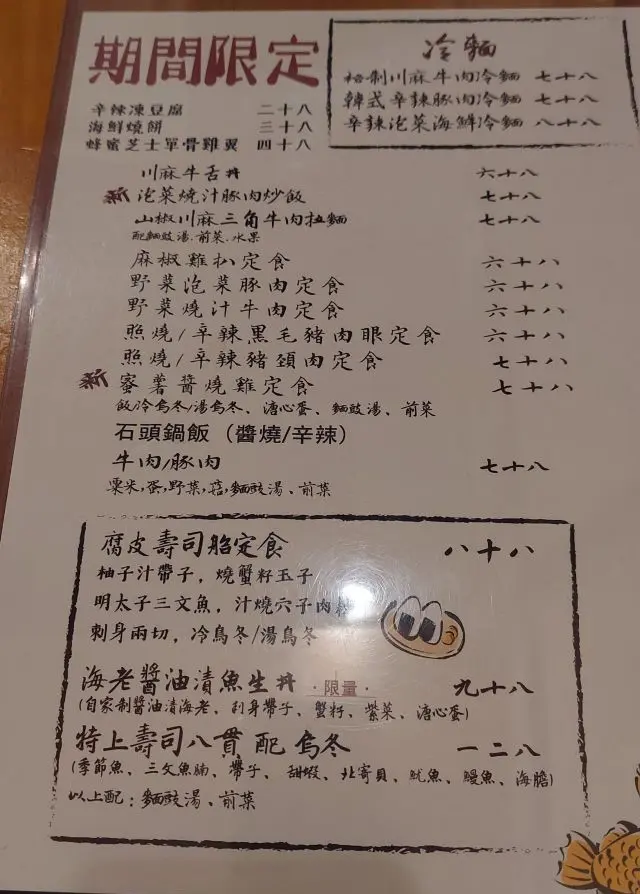 期間限定
辛辣凍豆腐 二十八
海鮮燒餅 三十八
蜂蜜芝士單骨雞翼 四十八
冷麵
秘制川麻牛肉冷麵 七十八
韓式辛辣豚肉冷麵 七十八
辛辣泡菜海鮮冷麵 八十八
川麻牛舌丼 六十八
新 泡菜燒汁豚肉炒飯 七十八
山椒川麻三角牛肉拉麵 七十八
配麵豉湯.前菜.水果
麻椒雞扒定食 六十八
野菜泡菜豚肉定食 六十八
野菜燒汁牛肉定食 六十八
照燒/辛辣黑毛豬肉眼定食 六十八
照燒/辛辣豬頸肉定食 七十八
新 蜜薯醬燒雞定食 七十八
飯/冷烏冬/湯烏冬、溏心蛋、麵豉湯、前菜
石頭鍋飯（醬燒/辛辣）
牛肉/豚肉 七十八
粟米,蛋,野菜,菇,麵豉湯、前菜
腐皮壽司船定食 八十八
柚子汁帶子，燒蟹籽玉子
明太子三文魚，汁燒穴子肉
刺身兩切，冷烏冬/湯烏冬
海老醬油漬魚生丼 ·限量· 九十八
(自家制醬油漬海老、刺身帶子、蟹籽、紫菜、溏心蛋)
特上壽司八貫 配 烏冬 一二八
(季節魚、三文魚腩、帶子、甜蝦、北寄貝、魷魚、鰻魚、海膽)
以上配：麵豉湯、前菜